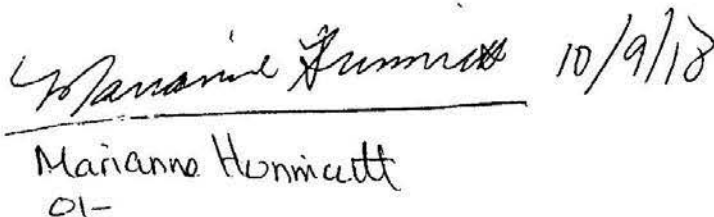 Marianne Hunnicutt 10/9/18
Marianne Hunnicutt
01-